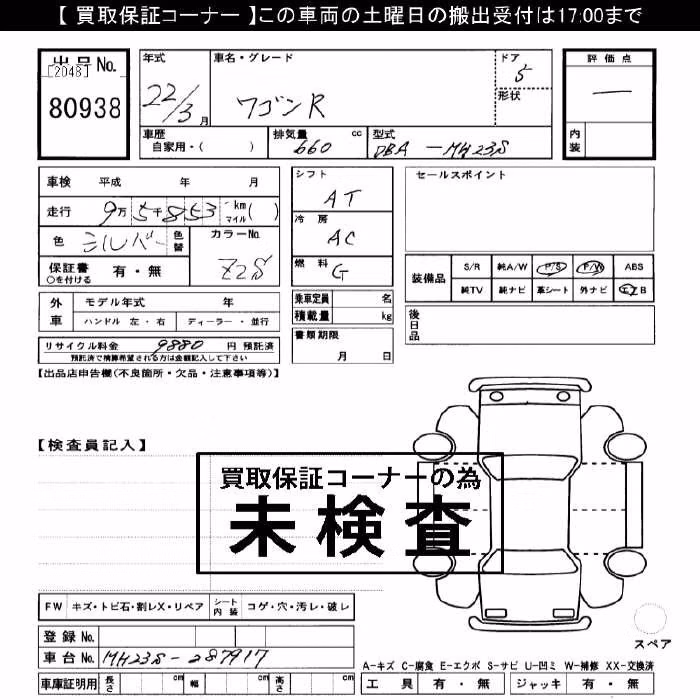 【 買取保証コーナー 】この車両の土曜日の搬出受付は17:00まで
出品No.
[2048]
80938
年式
22/3
月
車名・グレード
ワゴンR
ドア
5
形状
評価点
—
内装
車歴
自家用・( )
排気量
660
cc
型式
DBA-MH23S
車検 平成 年 月
走行 9万5千853 km マイル( )
色 シルバー
色替
カラーNo.
Z2S
保証書
○を付ける
有・無
シフト
AT
冷房
AC
燃料
G
セールスポイント
装備品
S/R 純A/W P/S P/W ABS
純TV 純ナビ 革シート 外ナビ エアB
外車
モデル年式 年
ハンドル 左・右 ディーラー・並行
乗車定員 名
積載量 kg
後日品
リサイクル料金 9880 円 預託済
預託済で精算希望される方は金額記入して下さい
書類期限
月 日
【出品店申告欄(不良箇所・欠品・注意事項等)】
【検査員記入】
買取保証コーナーの為
未検査
FW キズ・トビ石・割レX・リペア
シート内装
コゲ・穴・汚レ・破レ
登録No.
車台No. MH23S-287917
車庫証明用 長さ cm 幅 cm 高さ cm
スペア
A-キズ C-腐食 E-エクボ S-サビ U-凹ミ W-補修 XX-交換済
工具 有・無 ジャッキ 有・無